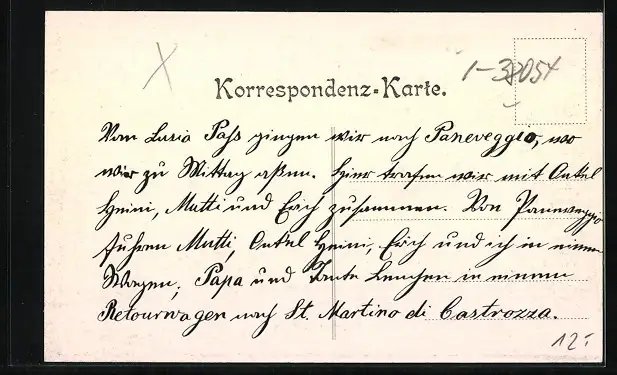 1-38054
Korrespondenz=Karte.
Vom Lusia Paſs gingen wir nach Paneveggio, wo
wir zu Mittag aßen. Hier trafen wir mit Onkel
Heini, Mutti und Erich zusammen. Von Paneveggio
fuhren Mutti, Onkel Heini, Erich und ich in einem
Wagen, Papa und Tante Lenchen in einem
Retourwagen nach St. Martino di Castrozza.
12.-